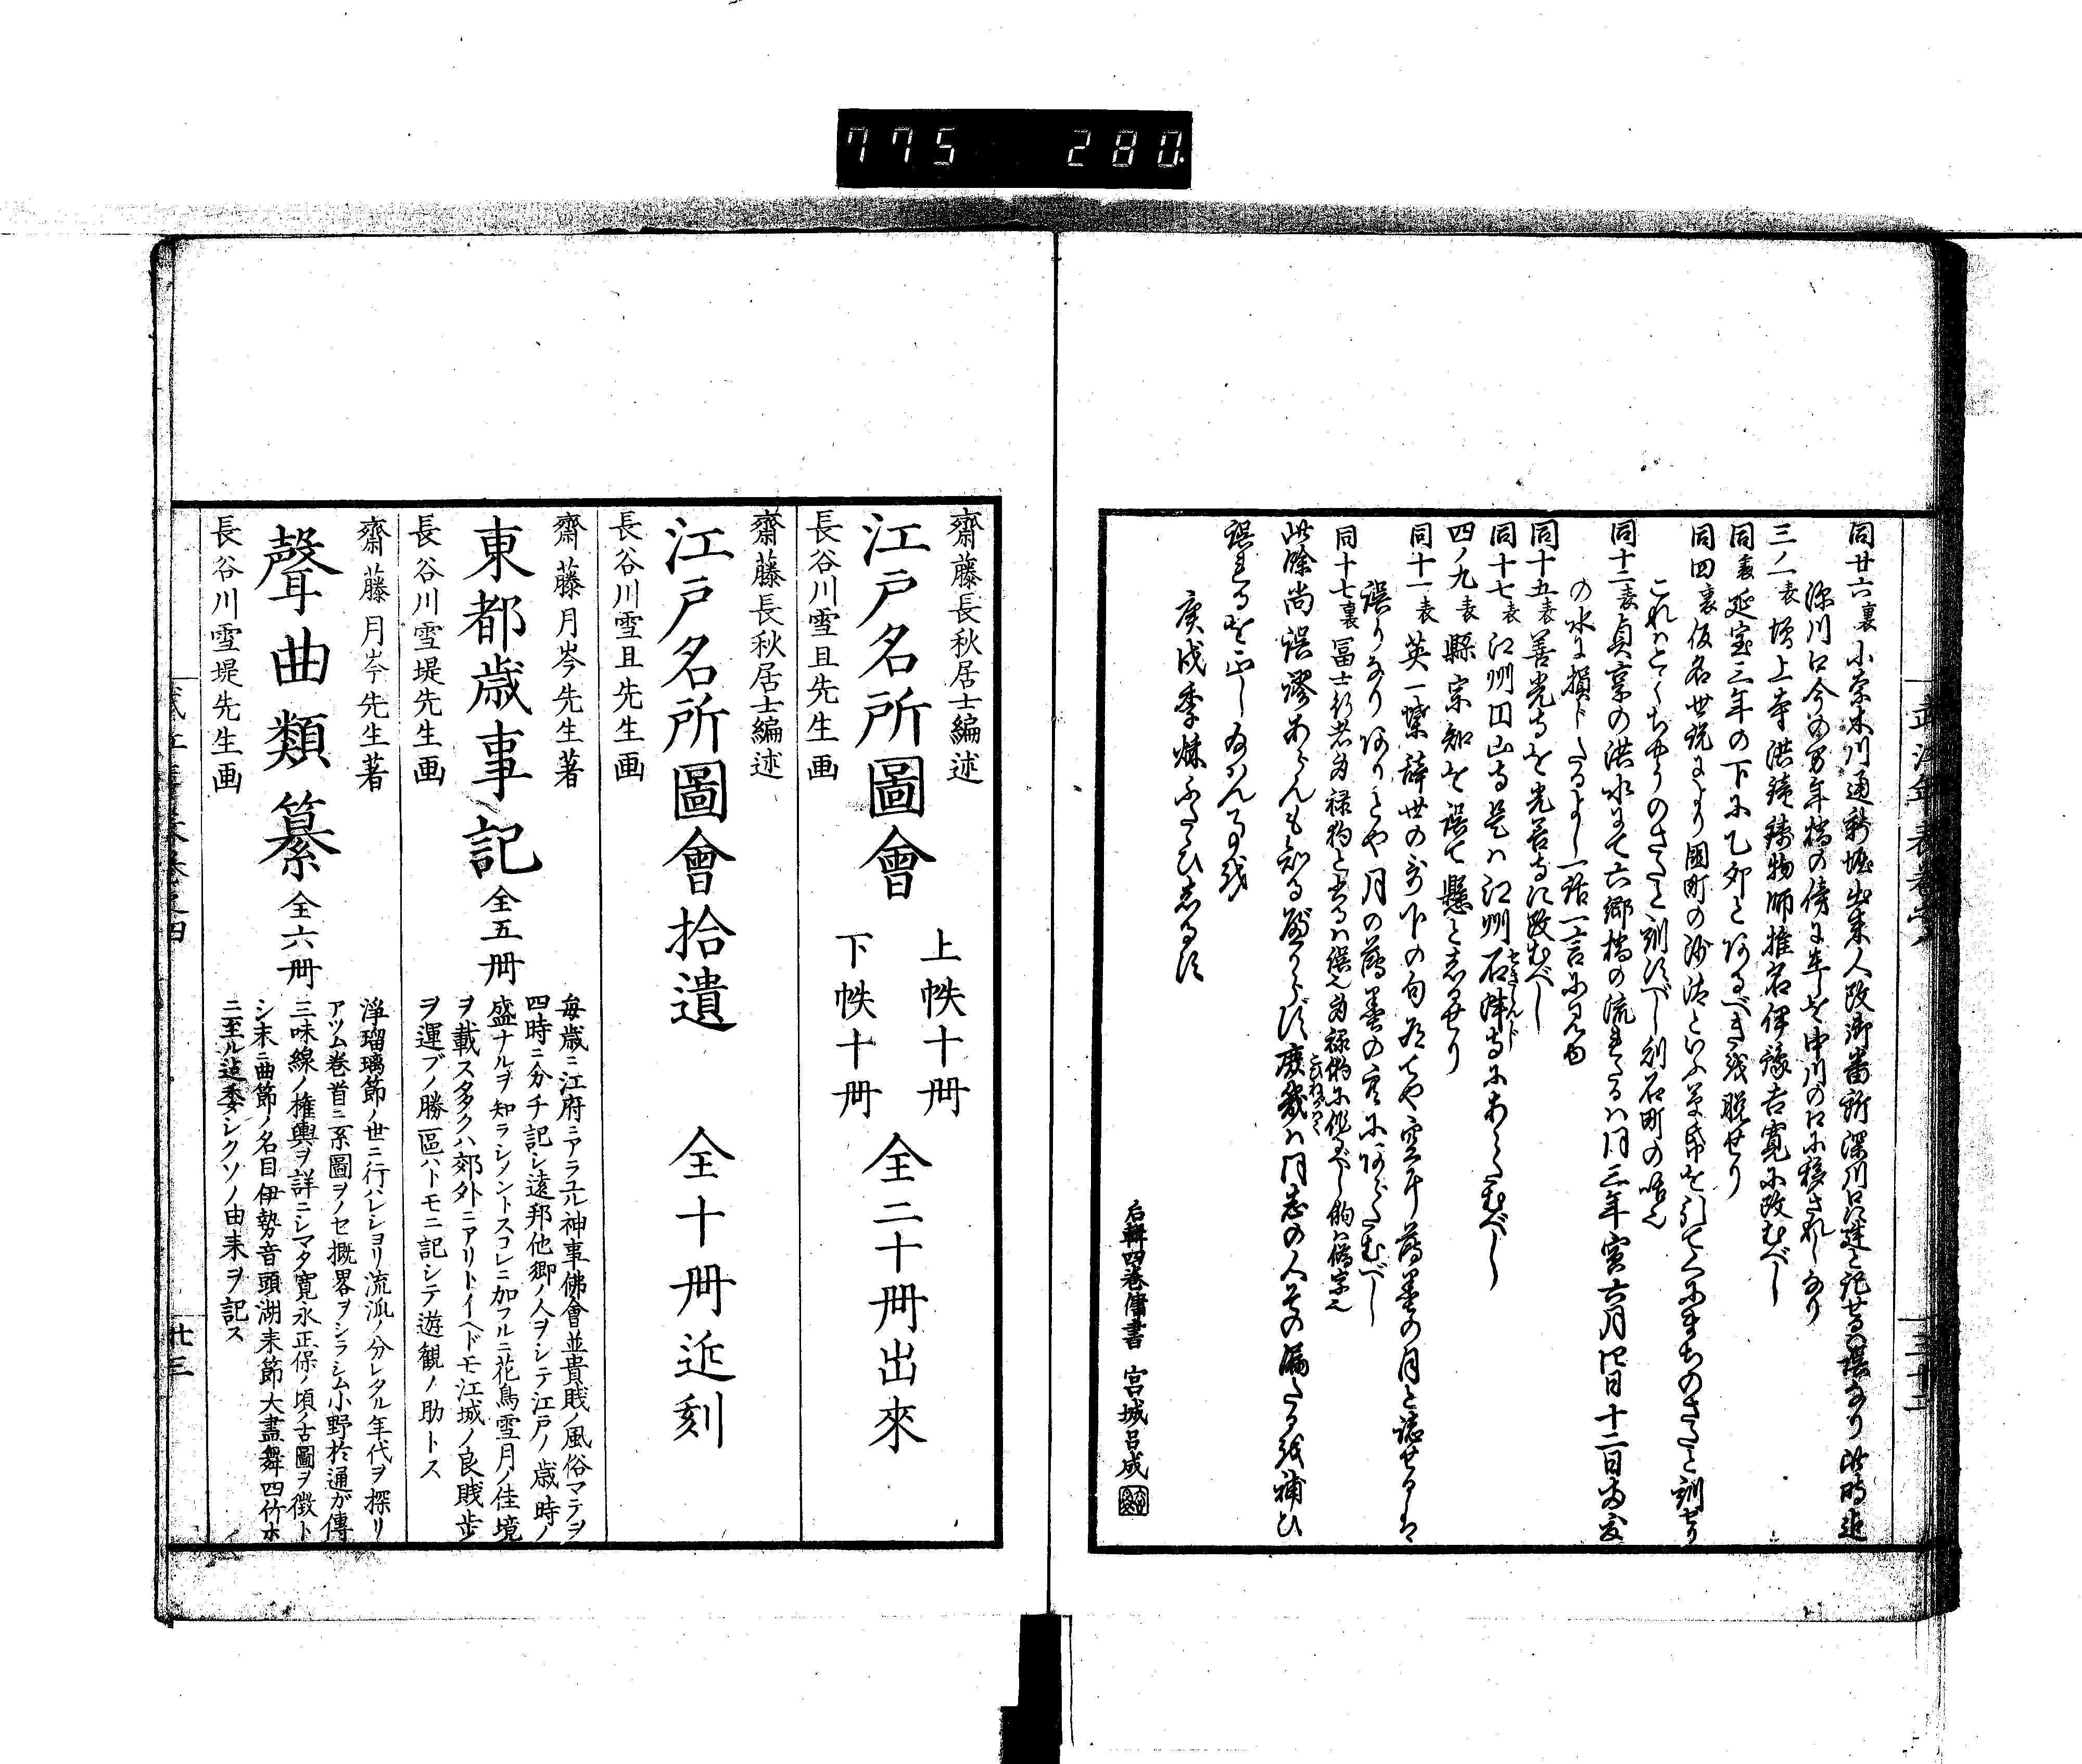 775 280
同廿六裏 小奈木川通新堀出来人改御番所深川口に建と記せるは誤なり此時迄
深川口今の万年橋の傍にありしを中川の口に移されしなり
三ノ一表 増上寺洪鐘鋳物師椎名伊豫吉寛に改むべし
同裏 延宝三年の下に乙卯とあるべきを脱せり
同四裏 仮名世説により国町の沙汰といふ草帋を引てくにまちのさたと訓せり
これはこくちやうのさたと訓ずべし則石町の唱也
同十二表 貞享の洪水にて六郷橋の流れたるは同三年寅六月四日十二日両度
の水に損じたるよし一話一言に見ゆ
同十五表 善光寺を光善寺に改むべし
同十七表 江州回山寺是は江州石津寺にあらたむべし
四ノ九表 縣宗知を誤て懸としるせり
同十一表 英一蝶辞世の
誤りなり
同十七裏 冨士行者身禄
此餘尚誤謬あらんも知るべからず庶幾は同志の人其の漏たるを補ひ
誤れるを正し給はん事を
庚戌季秋ふたたびしるす
右輯四巻傭書 宮城呂成
武江年表巻之
三十二
齋藤長秋居士編述
江戸名所圖會 上帙十冊 下帙十冊 全二十冊出來
長谷川雪旦先生画
齋藤長秋居士編述
江戸名所圖會拾遺 全十冊近刻
長谷川雪旦先生画
齋藤月岑先生著
東都歳事記 全五冊
毎歳ニ江府ニアラユル神事佛會並貴賎ノ風俗マテヲ
四時ニ分チ記シ遠邦他郷ノ人ヲシテ江戸ノ歳時ノ
盛ナルヲ知ラシメントスコレニ加フルニ花鳥雪月ノ佳境
ヲ載ス多クハ郊外ニアリトイヘドモ江城ノ良賎歩
ヲ運ブノ勝區ハトモニ記シテ遊観ノ助トス
長谷川雪堤先生画
齋藤月岑先生著
聲曲類纂 全六冊
浄瑠璃節ノ世ニ行ハレショリ流派ノ分レタル年代ヲ探リ
アツム巻首ニ系圖ヲノセ概畧ヲシラシム小野於通が傳
三味線ノ権輿ヲ詳ニシマタ寛永正保ノ頃ノ古圖ヲ徴ト
シ末ニ曲節ノ名目伊勢音頭湖来節大盡舞四竹ホ
ニ至ル迄委シクソノ由来ヲ記ス
長谷川雪堤先生画
廿三